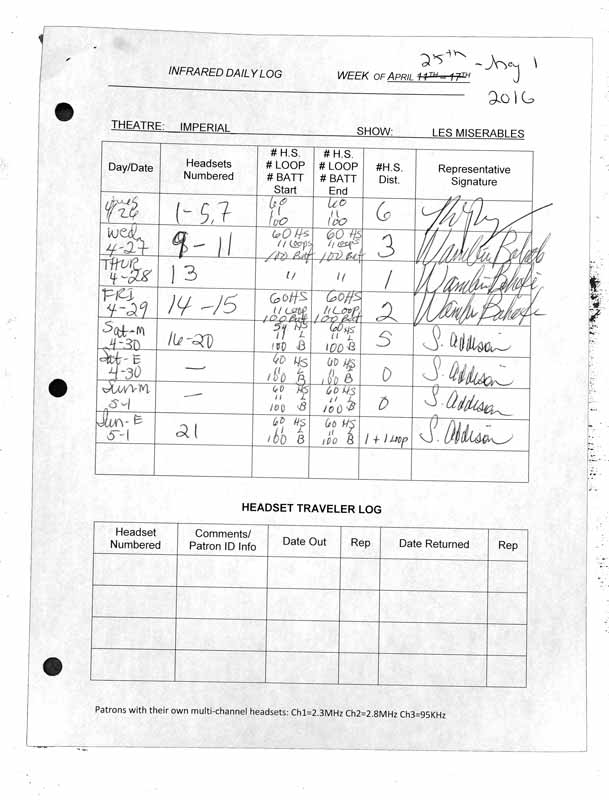 25th - May 1
INFRARED DAILY LOG WEEK OF APRIL 11TH - 17TH
2016
THEATRE: IMPERIAL SHOW: LES MISERABLES
Day/Date Headsets Numbered # H.S. # LOOP # BATT Start # H.S. # LOOP # BATT End #H.S. Dist. Representative Signature
4/26 1-5,7 60 11 100 60 11 100 6
Wed 4-27 9-11 60 HS 11 Loops 100 Bat 60 HS 11 Loops 100 Bat 3
THUR 4-28 13 " " 1
FRI 4-29 14-15 60HS 11 Loop 100 Bat 60HS 11 Loop 100 Bat 2
Sat-M 4-30 16-20 59 HS 11 L 100 B 60 HS 11 L 100 B 5 S. Addison
Sat-E 4-30 — 60 HS 11 L 100 B 60 HS 11 L 100 B 0 S. Addison
Sun-M 5-1 — 60 HS 11 L 100 B 60 HS 11 L 100 B 0 S. Addison
Sun-E 5-1 21 60 HS 11 L 100 B 60 HS 11 L 100 B 1+1 Loop S. Addison
HEADSET TRAVELER LOG
Headset Numbered Comments/ Patron ID Info Date Out Rep Date Returned Rep
Patrons with their own multi-channel headsets: Ch1=2.3MHz Ch2=2.8MHz Ch3=95KHz